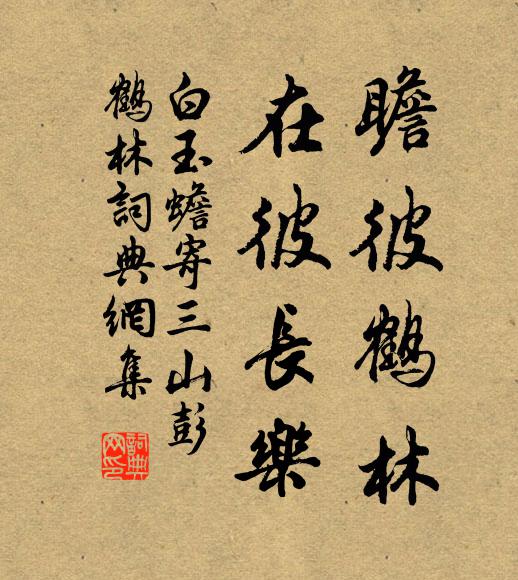 瞻彼鶴林
在彼長樂
白玉蟾寄三山彭
鶴林詞典網集
詞典網印